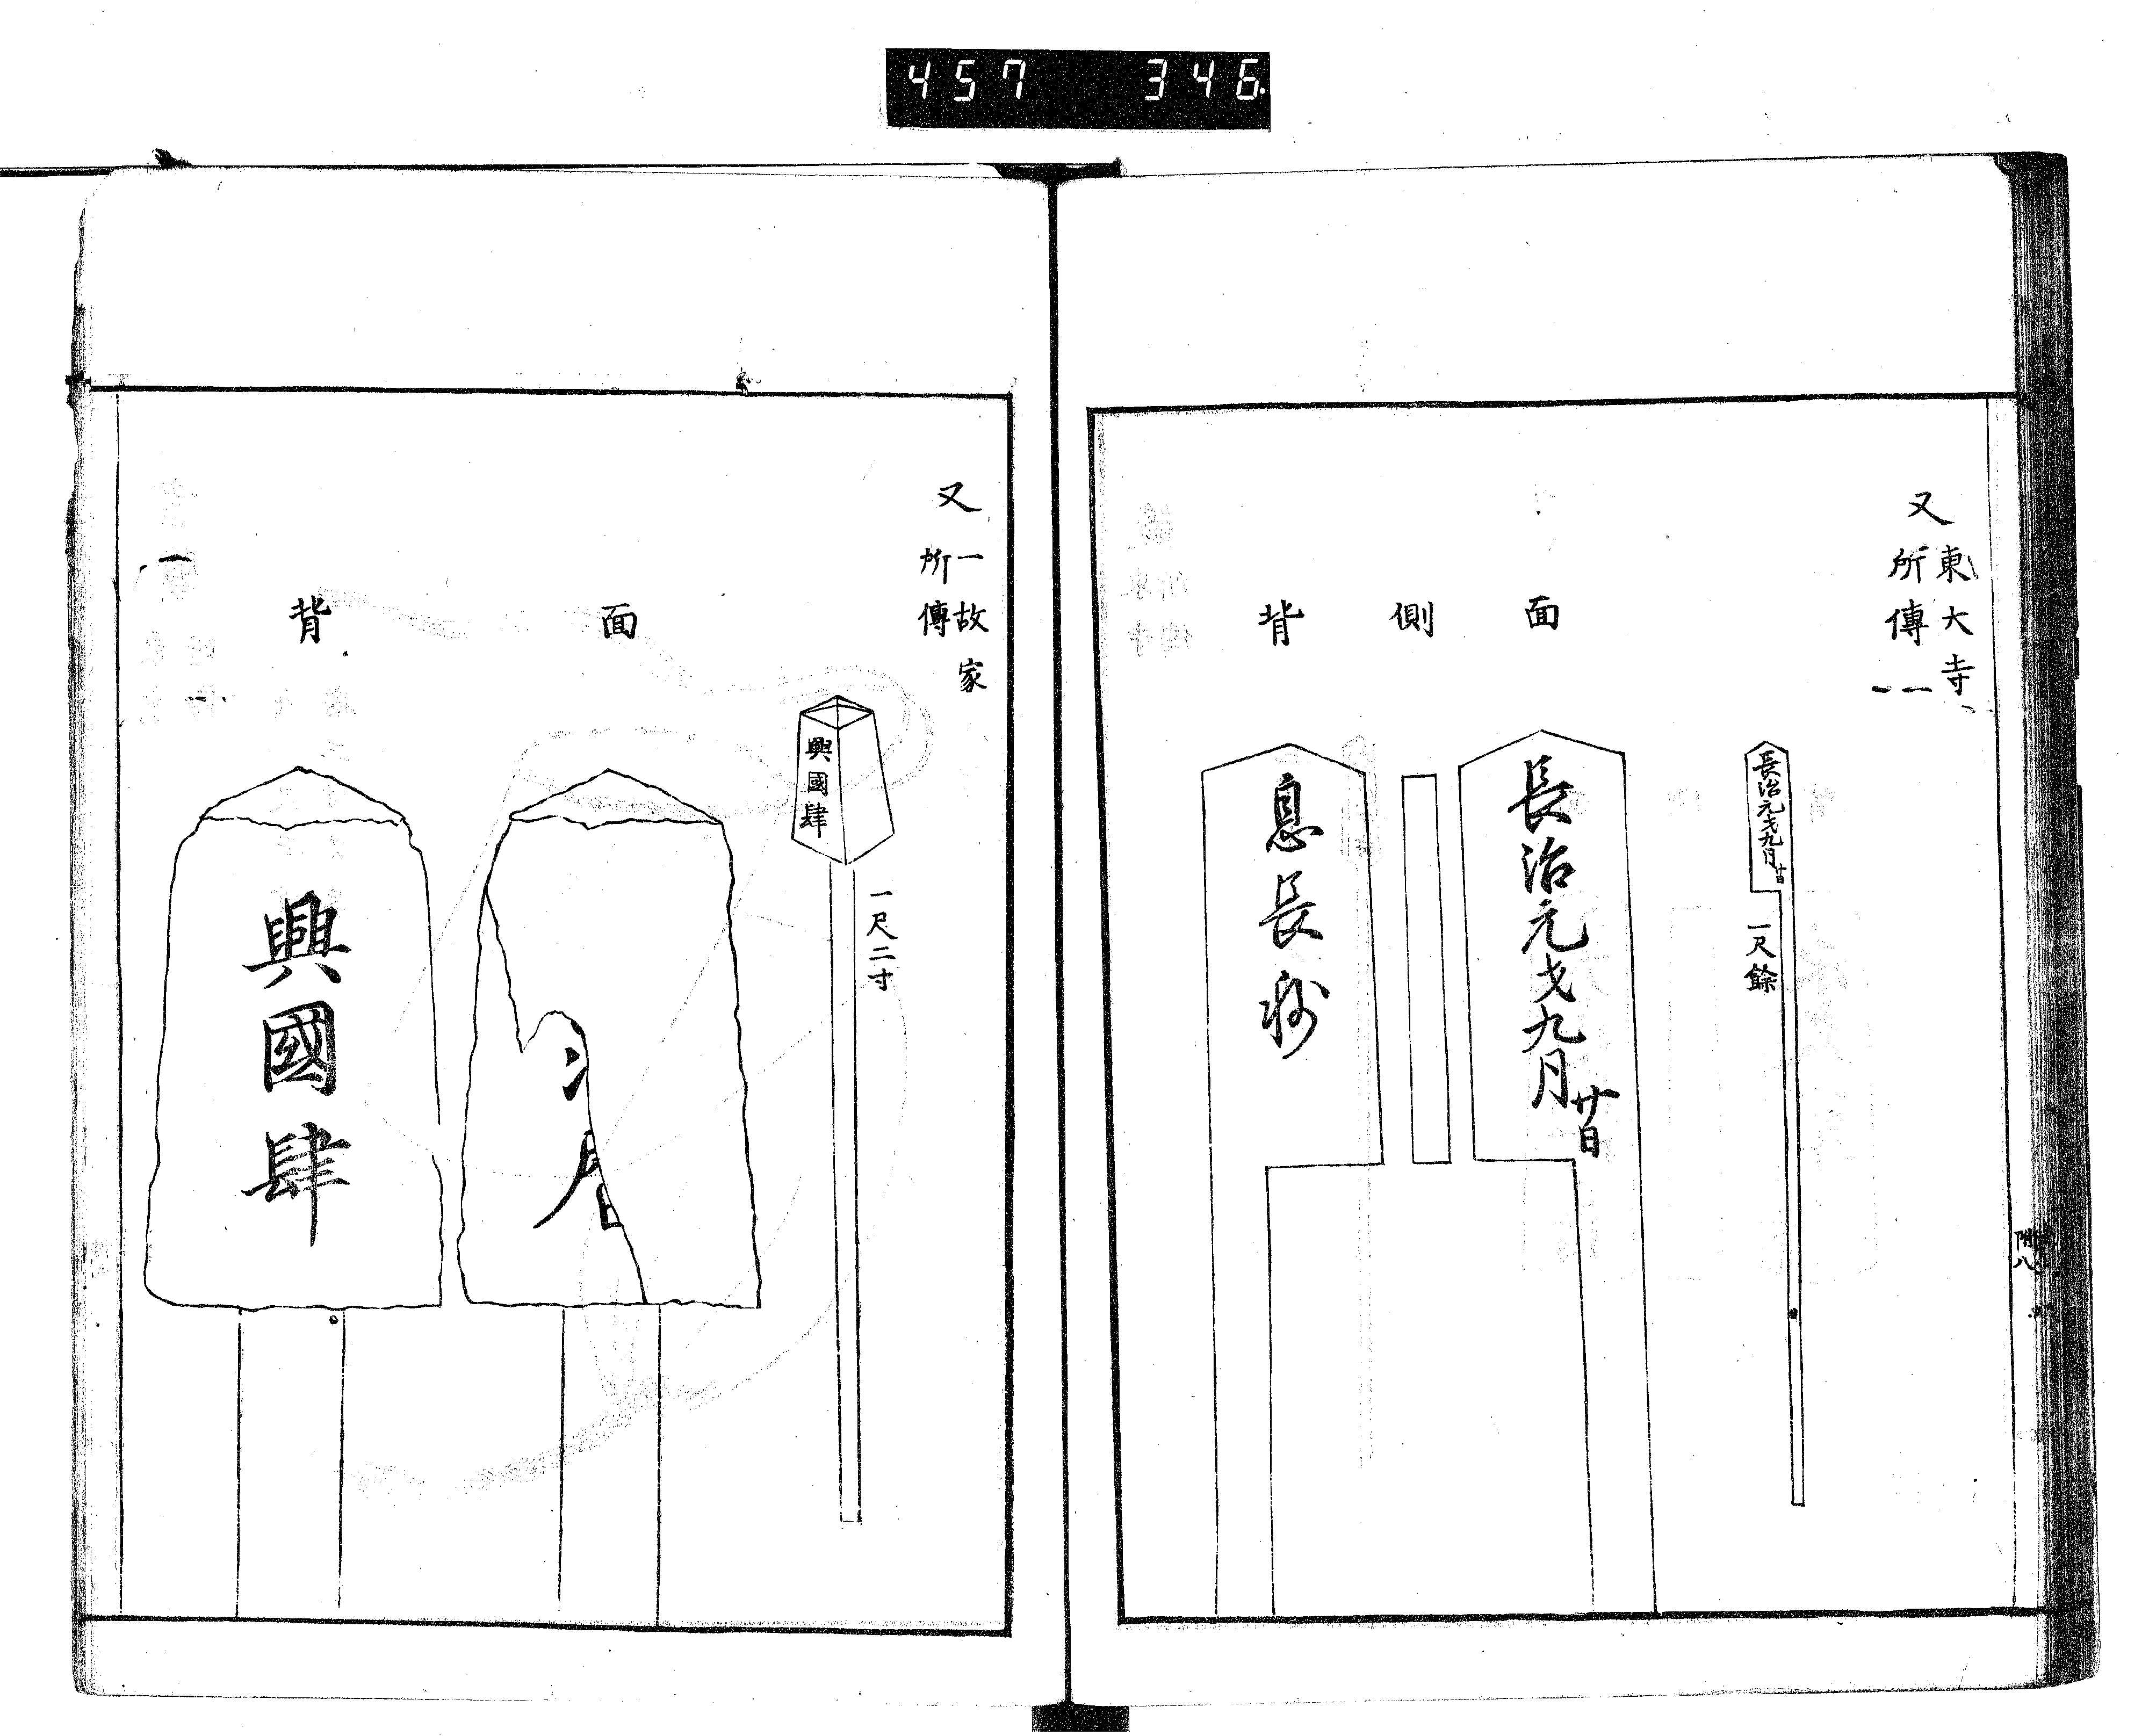 457 346
又
東大寺
所傳
長治元戈九月
廿日
一尺餘
面
長治元戈九月
廿日
側
背
息長
又
一故家
所傳
興國肆
一尺二寸
面
背
興國肆